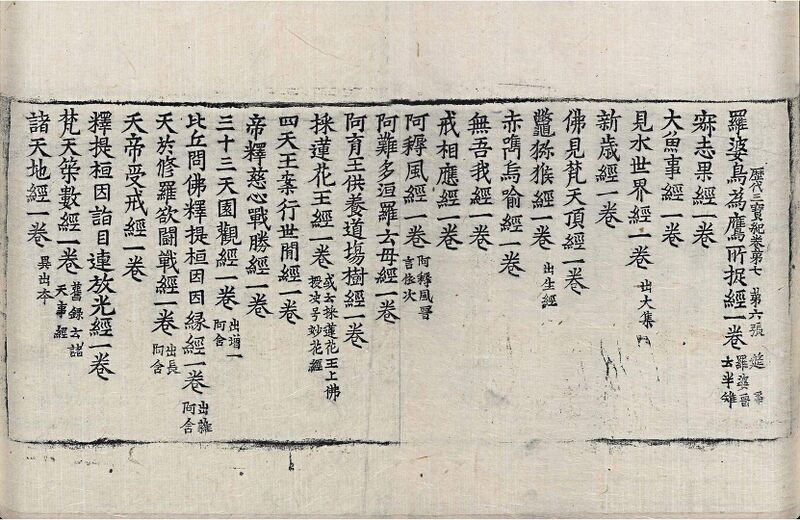 歷代三寶紀卷第七 第六張 筵
羅婆鳥為鷹所捉經一卷 羅婆晉云半雉
寐志果經一卷
大魚事經一卷
見水世界經一卷 出大集
新歲經一卷
佛見梵天頂經一卷
鼈獼猴經一卷 出生經
赤鴈烏喻經一卷
無吾我經一卷
戒相應經一卷
阿耨風經一卷 阿耨風晉言依次
阿難多洹羅云母經一卷
阿育王供養道場樹經一卷
採蓮花王經一卷 或云採蓮花王上佛授決号妙花經
四天王案行世間經一卷
帝釋慈心戰勝經一卷
三十三天園觀經一卷 出增一阿含
比丘問佛釋提桓因因緣經一卷 出雜阿含
天於修羅欲鬪戰經一卷 出長阿含
天帝受戒經一卷
釋提桓因詣目連放光經一卷
梵天策數經一卷 舊錄云諸天事經
諸天地經一卷 異出本